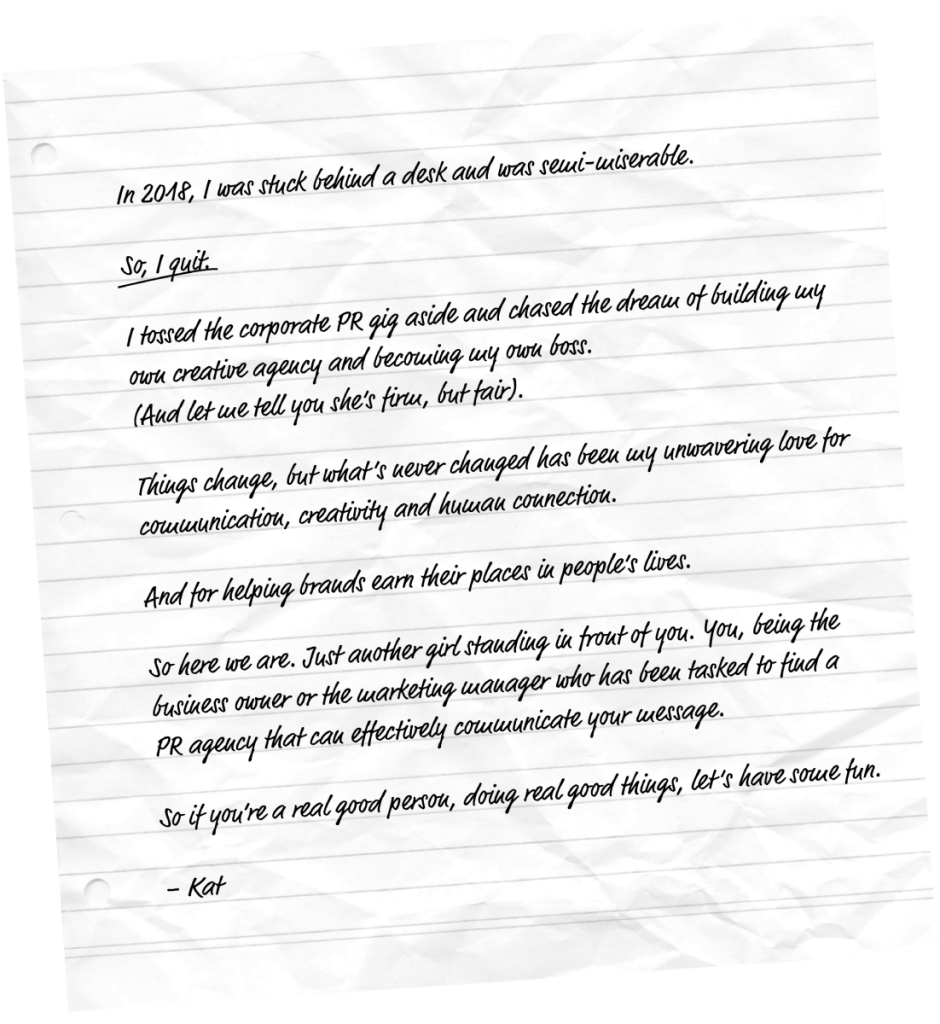 In 2018, I was stuck behind a desk and was semi-miserable.
So, I quit.
I tossed the corporate PR gig aside and chased the dream of building my
own creative agency and becoming my own boss.
(And let me tell you she's firm, but fair).
Things change, but what's never changed has been my unwavering love for
communication, creativity and human connection.
And for helping brands earn their places in people's lives.
So here we are. Just another girl standing in front of you. You, being the
business owner or the marketing manager who has been tasked to find a
PR agency that can effectively communicate your message.
So if you're a real good person, doing real good things, let's have some fun.
– Kat